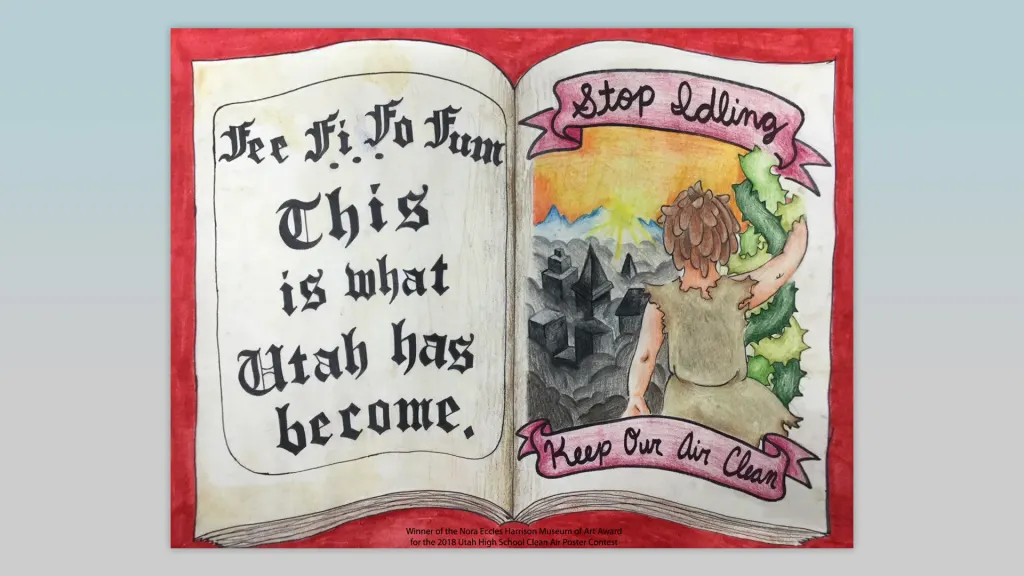 Fee Fi Fo Fum
...
This
is what
Utah has
become.
Stop Idling
Keep Our Air Clean
Winner of the Nora Eccles Harrison Museum of Art Award
for the 2018 Utah High School Clean Air Poster Contest